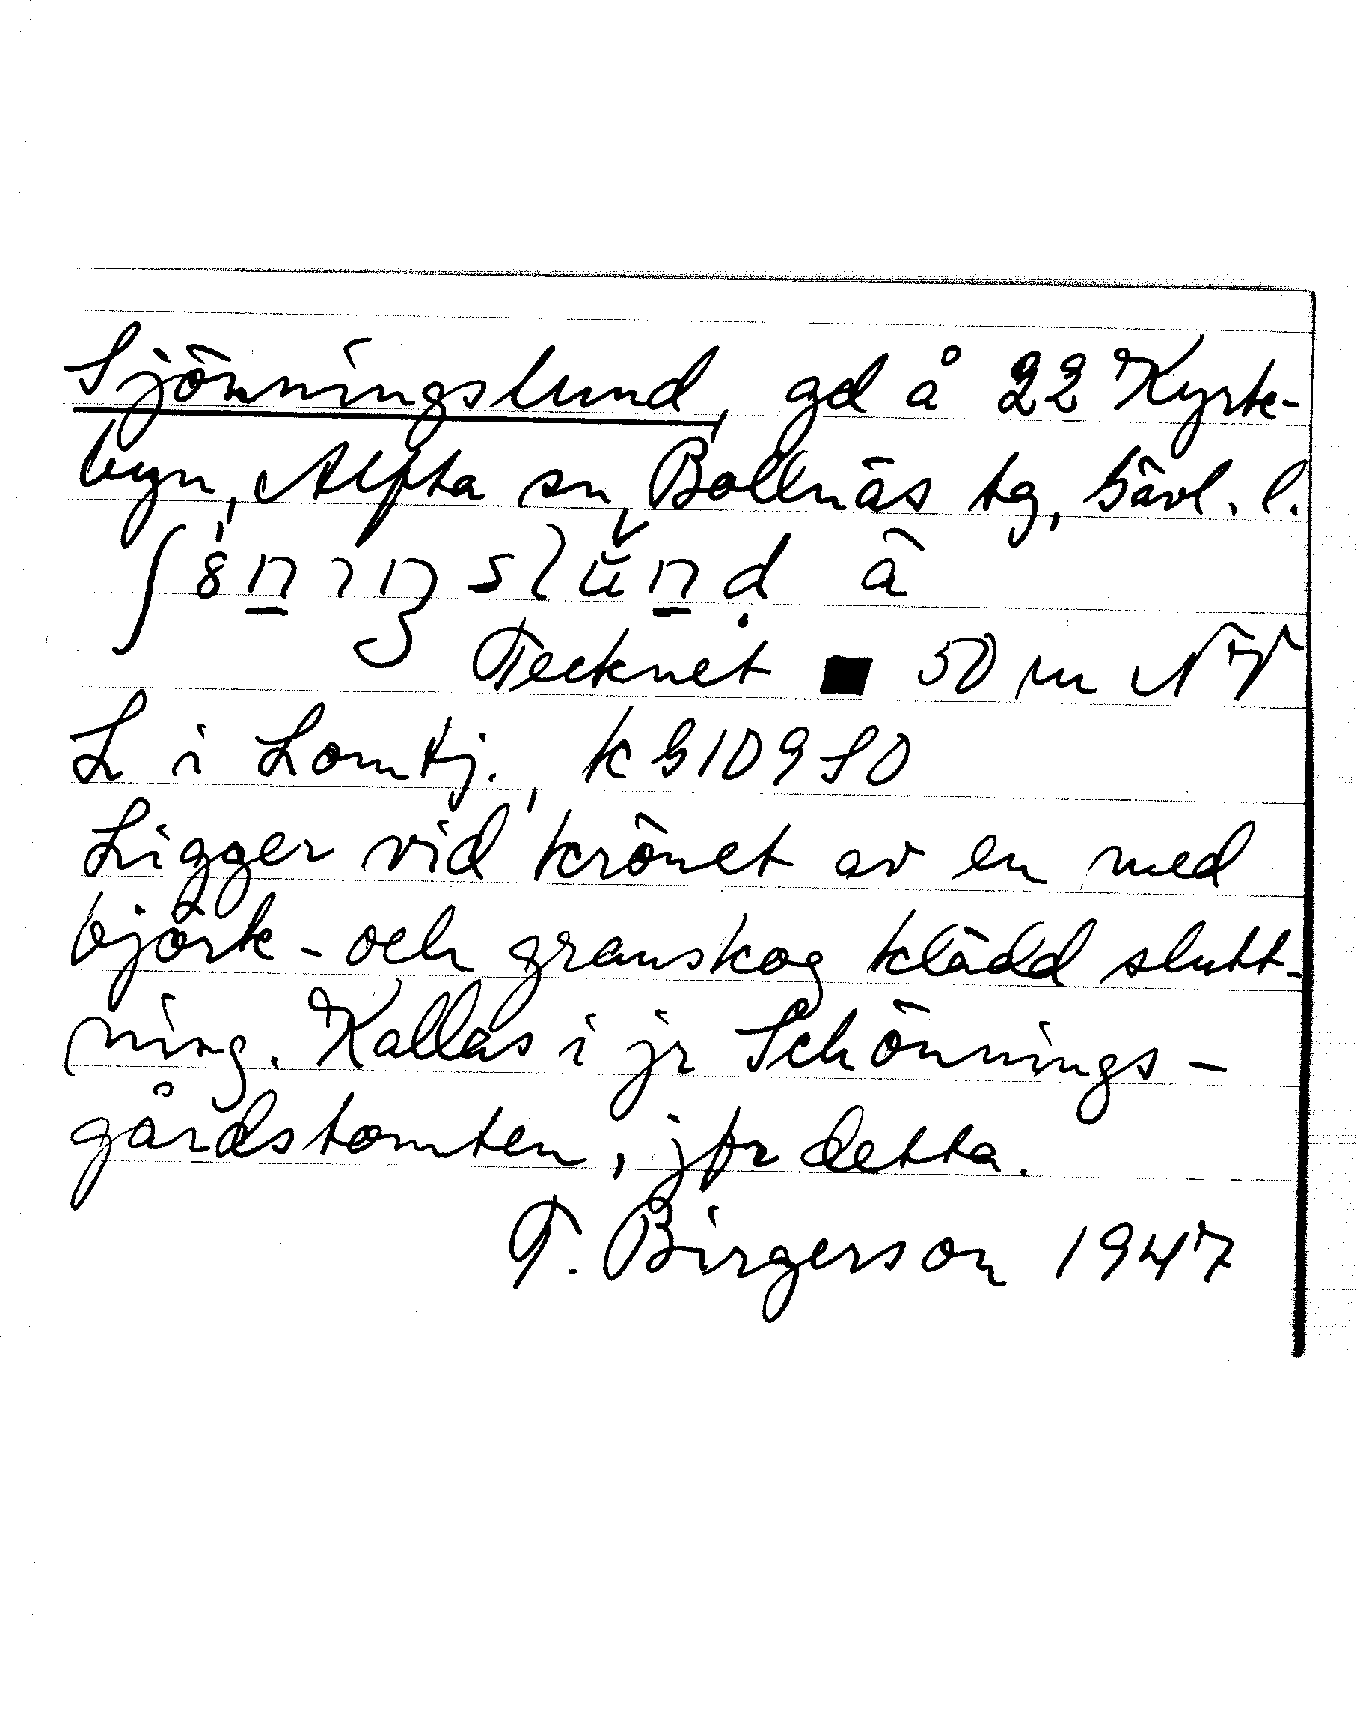 Sjönningslund, gd å 22 Kyrk-
byn, Alfta sn, Bollnäs tg, Gävl. l.
Tecknet ■ 50 m NV
L i Lomtj., k G10980
Ligger vid krönet av en med
björk- och granskog klädd slutt-
ning. Kallas i jr Schönnings-
gårdstomten, jfr detta.
T. Birgerson 1947